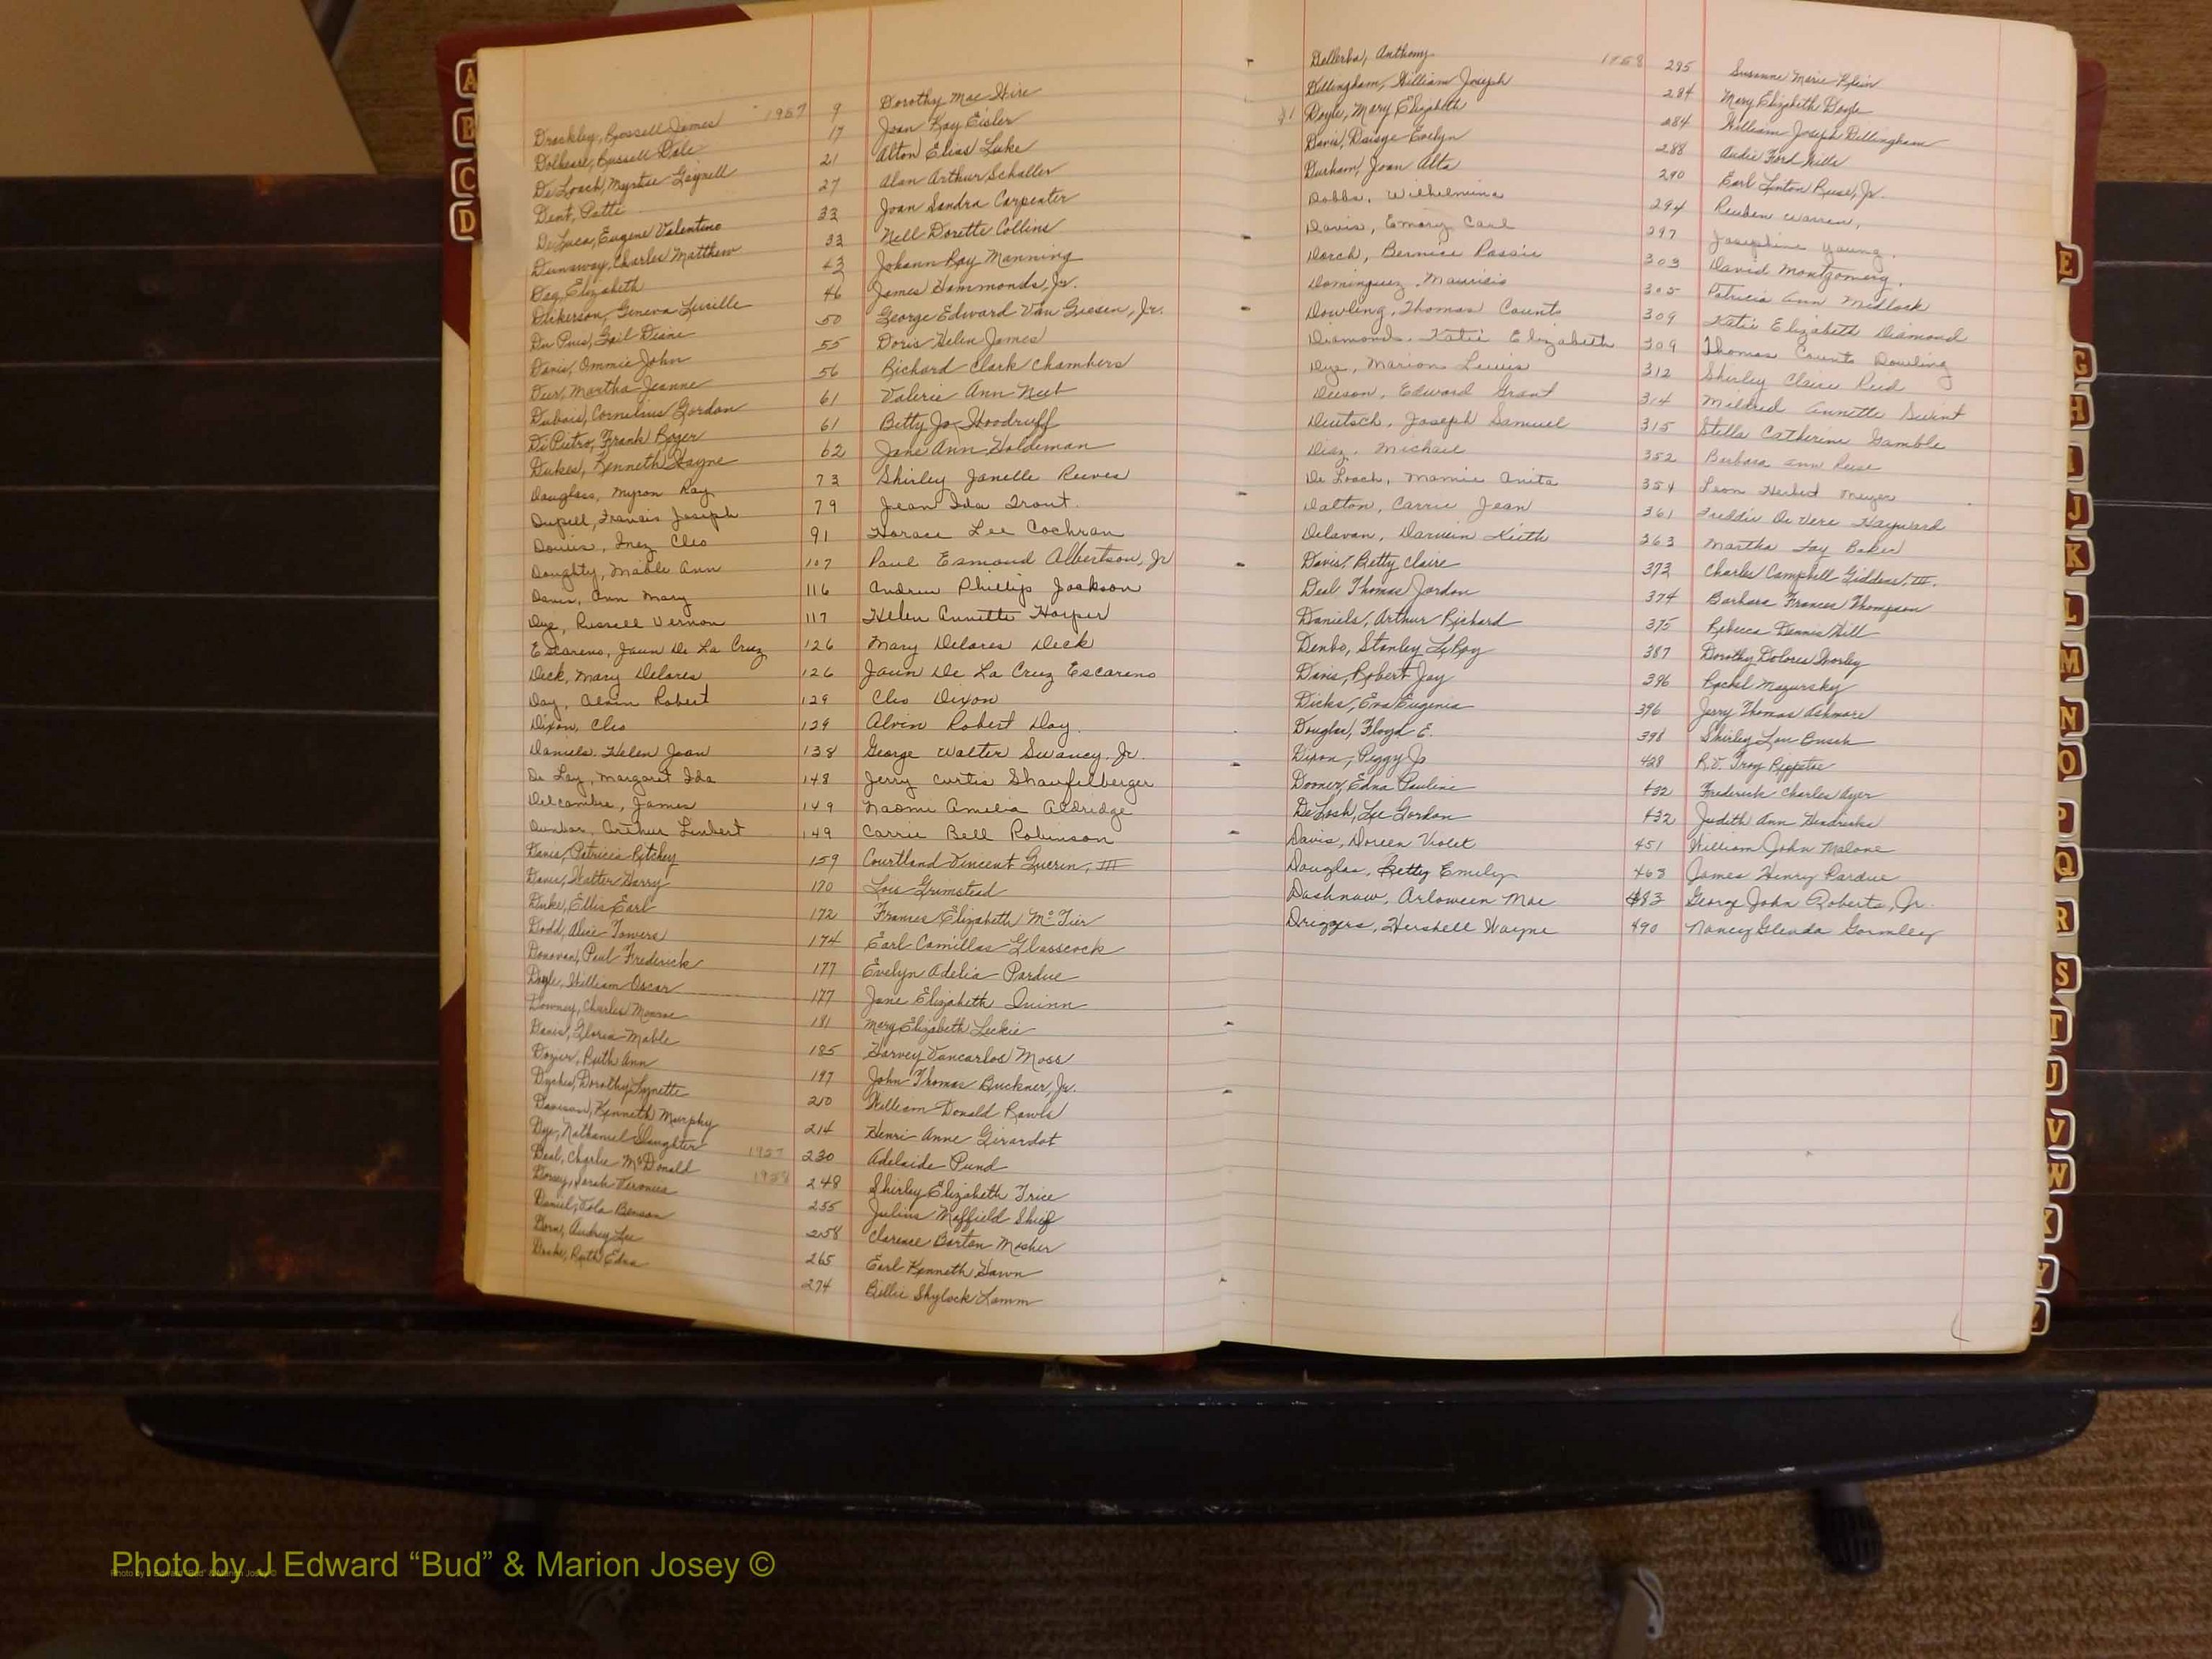 Drackley, Russell James 1957 9 Dorothy Mae Hire
Dolbeare, Russell Dale 17 Joan Kay Eisler
De Loach, Myrtice Gaynell 21 Alton Elias Luke
Dent, Patte 27 Alan Arthur Schaller
De Luca, Eugene Valentino 33 Joan Sandra Carpenter
Dunaway, Charles Matthew 33 Nell Dorette Collins
Day, Elizabeth 43 Johann Ray Manning
Dickerson, Geneva Lucille 46 James Hammonds, Jr.
Du Puis, Gail Diane 50 George Edward Van Giesen, Jr.
Davis, Ommie John 55 Doris Helen James
Duer, Martha Jeanne 56 Richard Clark Chambers
Dubois, Cornelius Gordon 61 Valerie Ann Neet
DiPietro, Frank Roger 61 Betty Jo Woodruff
Dukes, Kenneth Wayne 62 Jane Ann Holdeman
Douglass, Myron Ray 73 Shirley Janelle Reeves
Dupill, Francis Joseph 79 Jean Ida Trout.
Davis, Inez Cleo 91 Horace Lee Cochran
Doughty, Mable Ann 107 Paul Esmond Albertson, Jr
Davis, Ann Mary 116 Andrew Phillip Jackson
Dye, Russell Vernon 117 Helen Annette Harper
Escareno, Jaun De La Cruz 126 Mary Delores Deck
Deck, Mary Delores 126 Jaun De La Cruz Escareno
Day, Alvin Robert 129 Cleo Dixon
Dixon, Cleo 129 Alvin Robert Day
Daniels. Helen Joan 138 George Walter Swancy, Jr.
De Lay, Margaret Ida 148 Jerry Curtis Shaufelberger
Delcambre, James 149 Naomi Amelia Aldredge
Dunbar, Arthur Limbert 149 Carrie Bell Robinson
Davis, Patricia Ritchey 159 Courtland Vincent Guerin, III
Davis, Walter Harry 170 Lois Grimsted
Duke, Ellis Earl 172 Frances Elizabeth McTier
Dodd, Alice Towers 174 Earl Camillas Glasscock
Donovan, Paul Frederick 177 Evelyn Adelia Pardue
Dogle, William Oscar 177 Jane Elizabeth Quinn
Downey, Charles Monroe 181 Mary Elizabeth Leckie
Davis, Gloria Mable 185 Harvey Vancarlos Moss
Dozier, Ruth Ann 197 John Thomas Buckner, Jr.
Dyches, Dorothy Lynette 210 William Donald Rawls
Davison, Kenneth Murphy 214 Henri Anne Girardot
Dye, Nathaniel Slaughter 1957 230 Adelaide Pund
Deal, Charlie McDonald 1958 248 Shirley Elizabeth Trice
Dorsey, Sarah Veronica 255 Julius Maffield
Daniel, Iola Benson 258 Clarence Barton Mosher
Dorn, Audrey Lee 265 Earl Kenneth Hawn
Drake, Ruth Edna 274 Billie Shylock Lamm
Dallerba, Anthony 1958 285 Susanne Marie Klein
Dillingham, William Joseph 284 Mary Elizabeth Doyle
Doyle, Mary Elizabeth 284 William Joseph Dillingham
Davis, Daisye Evelyn 288 Audie Ford Mills
Durham, Joan Alta 290 Earl Linton Ruse, Jr.
Dobbs, Wilhelmina 294 Reuben Warren,
Davis, Emory Carl 297 Josephine Young.
Dorch, Bernice Passie 303 David Montgomery,
Dominguez, Mauricio 305 Patricia Ann Medlock
Dowling, Thomas Counts 309 Katie Elizabeth Diamond
Diamond. Katie Elizabeth 309 Thomas Counts Dowling
Dye, Marion Lewis 312 Shirley Claire Reed
Deeson, Edward Grant 314 Mildred Annette Swint
Deutsch, Joseph Samuel 315 Stella Catherine Gamble
Diaz. Michael 352 Barbara Ann Reese
De Loach, Mamie Anita 354 Leon Herbert Meyer
Dalton, Carrie Jean 361 Freddie De Vere Hayward
Delavan, Darwin Keith 363 Martha Fay Baker
Davis, Betty Claire 373 Charles Campbell Giddens, III.
Deal Thomas Jordon 374 Barbara Frances Thompson
Daniels, Arthur Richard 375 Rebecca Dennis Hill
Denbo, Stanley LeRoy 387 Dorothy Dolores Shorley
Davis, Robert Jay 396 Rachel Mazursky
Dicks, Eva Eugenia 396 Jerry Thomas Ashmore
Douglas, Floyd E. 398 Shirley Lou Busch
Dixon, Peggy Jo 428 R.V. Troy Reppetoe
Doomer, Edna Pauline 432 Frederick Charles Ayer
DeLosh, Lee Gordon 432 Judith Ann Hendricks
Davis, Doreen Violet 451 William John Malone
Douglas, Betty Emily 463 James Henry Pardue
Dashnaw, Arloween Mae 483 George John Roberts, Jr.
Driggers, Hershell Wayne 490 Nancy Glenda Gormley
A
B
C
D
E
G
H
I
J
K
L
M
N
O
P
Q
R
S
T
U
V
W
X
Y
Z
Photo by J Edward “Bud” & Marion Josey ©
Photo by J Edward “Bud” & Marion Josey ©